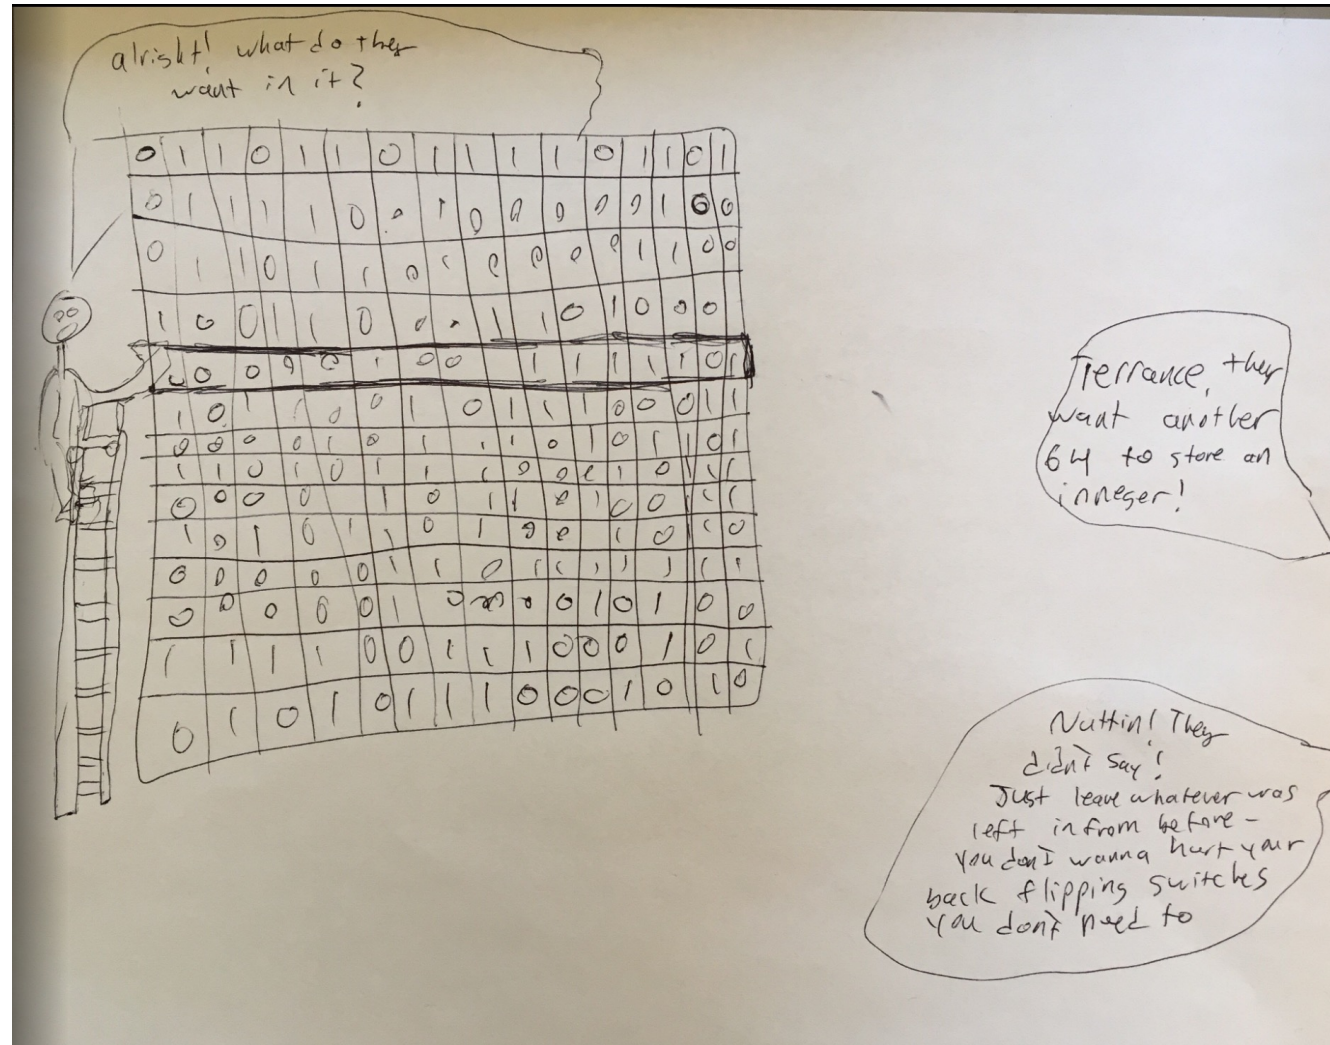 alright! what do they
want in it?
0 1 1 0 1 1 0 1 1 1 1 0 1 1 0 1
0 1 1 1 1 0 0 1 0 0 0 0 0 1 0 0
0 1 1 0 1 1 0 1 0 0 0 0 1 1 0 0
1 0 0 1 1 0 0 . 1 1 0 1 0 0 0
0 0 0 0 0 1 0 0 1 1 1 1 1 0 1
1 0 1 1 0 0 1 0 1 1 1 0 0 0 1 1
0 0 0 0 1 0 1 1 1 0 1 0 1 1 0 1
1 1 0 1 0 1 1 1 1 0 0 0 1 0 1 1
0 0 0 0 1 0 1 1 0 1 0 0 1 1
1 0 1 0 1 1 0 1 0 0 1 0 1 0
0 0 0 0 0 1 1 0 1 1 1 1 1 1 1
0 0 0 0 0 1 0 0 0 1 0 1 0 0
1 1 1 1 0 0 1 1 1 0 0 0 1 0 1
0 1 0 1 0 1 1 1 0 0 0 1 0 1 0
Terrance, they
want another
64 to store an
inneger!
Nuttin! They
didn't say!
Just leave whatever was
left in from before -
you don't wanna hurt your
back flipping switches
you don't need to